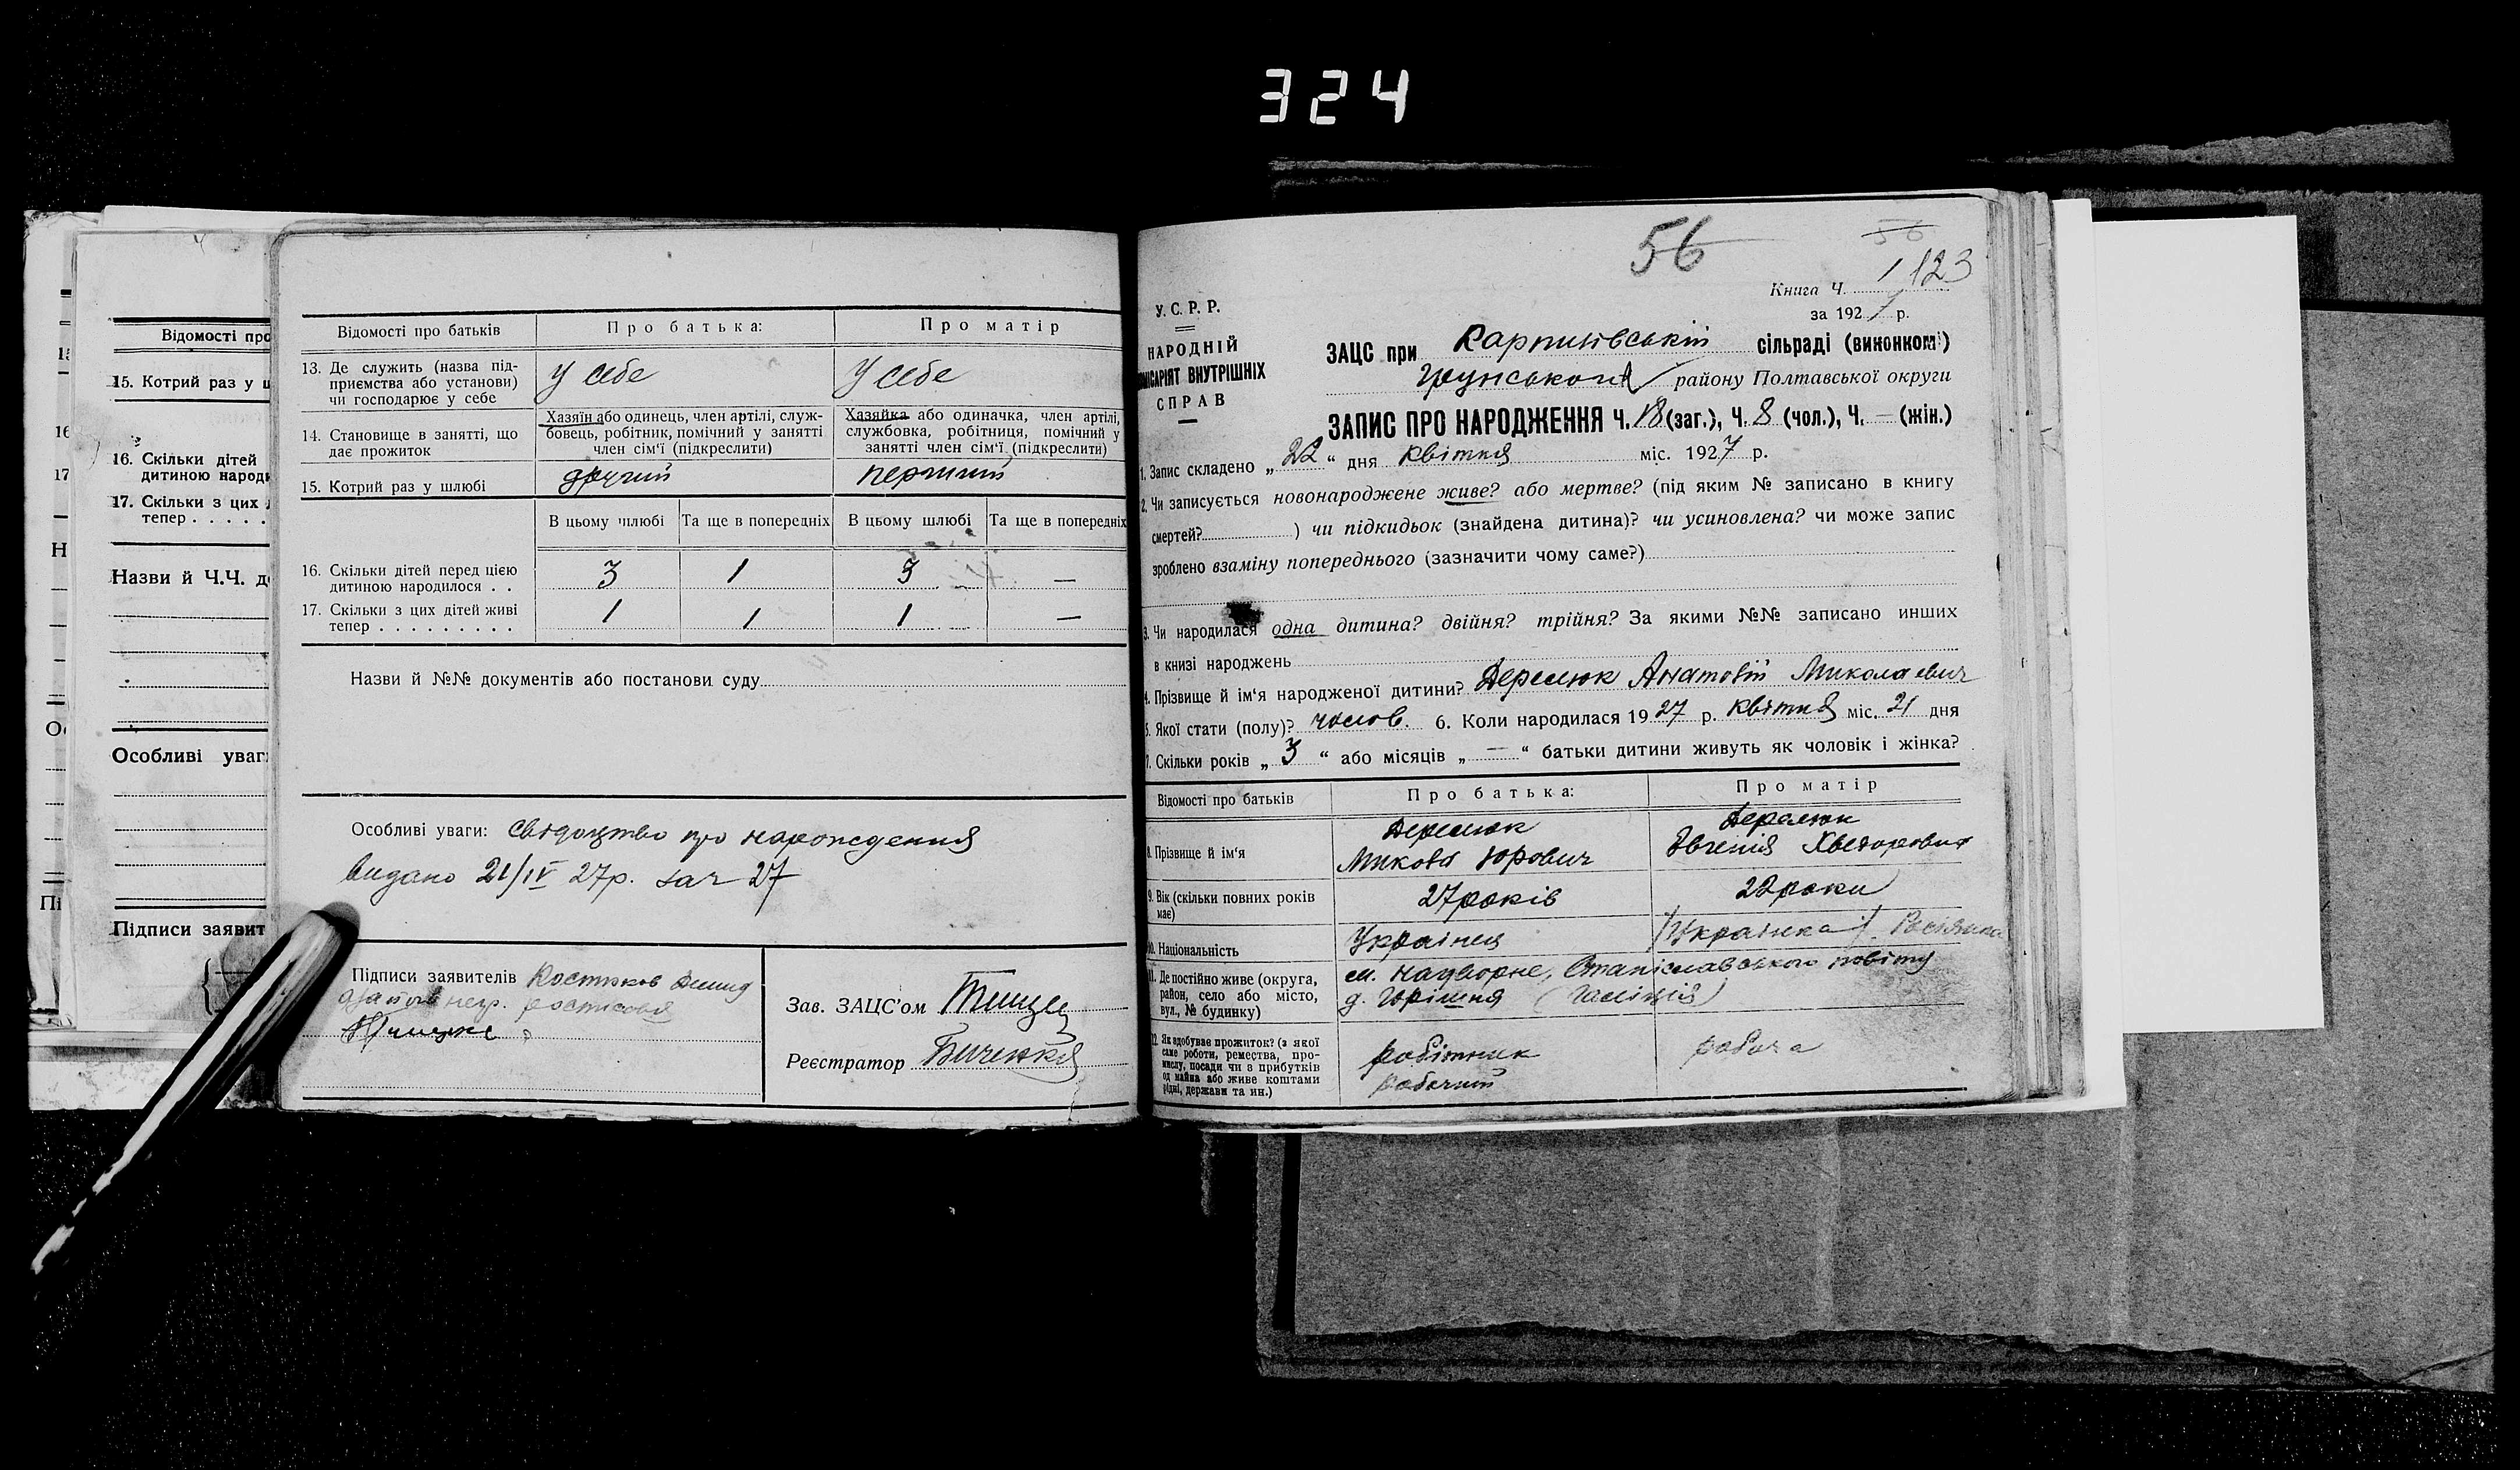 324
Відомості про
15. Котрий раз у ш
16. Скільки дітей
дитиною народ
17. Скільки з цих
тепер . . . . .
Назви й Ч.Ч. д
Особливі уваг
Підписи заявит
Відомості про батьків
Про батька:
Про матір
13. Де служить (назва під-
приємства або установи)
чи господарює у себе
у себе
У себе
14. Становище в занятті, що
дає прожиток
Хазяїн або одинець, член артілі, служ-
бовець, робітник, помічний у занятті
член сім'ї (підкреслити)
Хазяйка або одиначка, член артілі,
службовка, робітниця, помічний у
занятті член сім'ї (підкреслити)
15. Котрий раз у шлюбі
другий
перший
В цьому шлюбі
Та ще в попередніх
В цьому шлюбі
Та ще в попередніх
16. Скільки дітей перед цією
дитиною народилося . .
3
1
3
—
17. Скільки з цих дітей живі
тепер . . . . . . . . .
1
1
1
—
Назви й №№ документів або постанови суду
Особливі уваги: свідоцтво про нарождения
видано 21/IV 27р. зач 27
Підписи заявителів Костюков Демид
Зав. ЗАЦС'ом
Реєстратор Биченко
56
56
123
Книга Ч. 1
за 1927 р.
У. С. Р. Р.
НАРОДНІЙ
КОМІСАРІЯТ ВНУТРІШНІХ
СПРАВ
ЗАЦС при Карпилівській сільраді (виконком)
Грунського району Полтавської округи
ЗАПИС ПРО НАРОДЖЕННЯ Ч. 18 (заг.), Ч. 8 (чол.), Ч. — (жін.)
1. Запис складено „ 22 “ дня квітня міс. 1927 р.
2. Чи записується новонароджене живе? або мертве? (під яким № записано в книгу
смертей? ) чи підкидьок (знайдена дитина)? чи усиновлена? чи може запис
зроблено взаміну попереднього (зазначити чому саме?)
3. Чи народилася одна дитина? двійня? трійня? За якими №№ записано инших
в книзі народжень
4. Прізвище й ім'я народженої дитини? Дерелюк Анатолій Миколаевич
5. Якої стати (полу)? чолов. 6. Коли народилася 1927 р. квітня міс. 21 дня
7. Скільки років „ 3 “ або місяців „ — “ батьки дитини живуть як чоловік і жінка?
Відомості про батьків
Про батька:
Про матір
8. Прізвище й ім'я
Дерелюк
Микола Юрович
Дерелюк
Евгенія Хведоровна
9. Вік (скільки повних років
має)
27 років
22 роки
10. Національність
Українец
(Українка)
11. Де постійно живе (округа,
район, село або місто,
вул., № будинку)
м. Надворне, Станіславського повіту
д. Горішня (Галіція)
12. Як здобуває прожиток? (з якої
саме роботи, ремества, про-
мислу, посади чи з прибутків
од майна або живе коштами
рідні, держави та ин.)
робітник
рабочий
рабоча